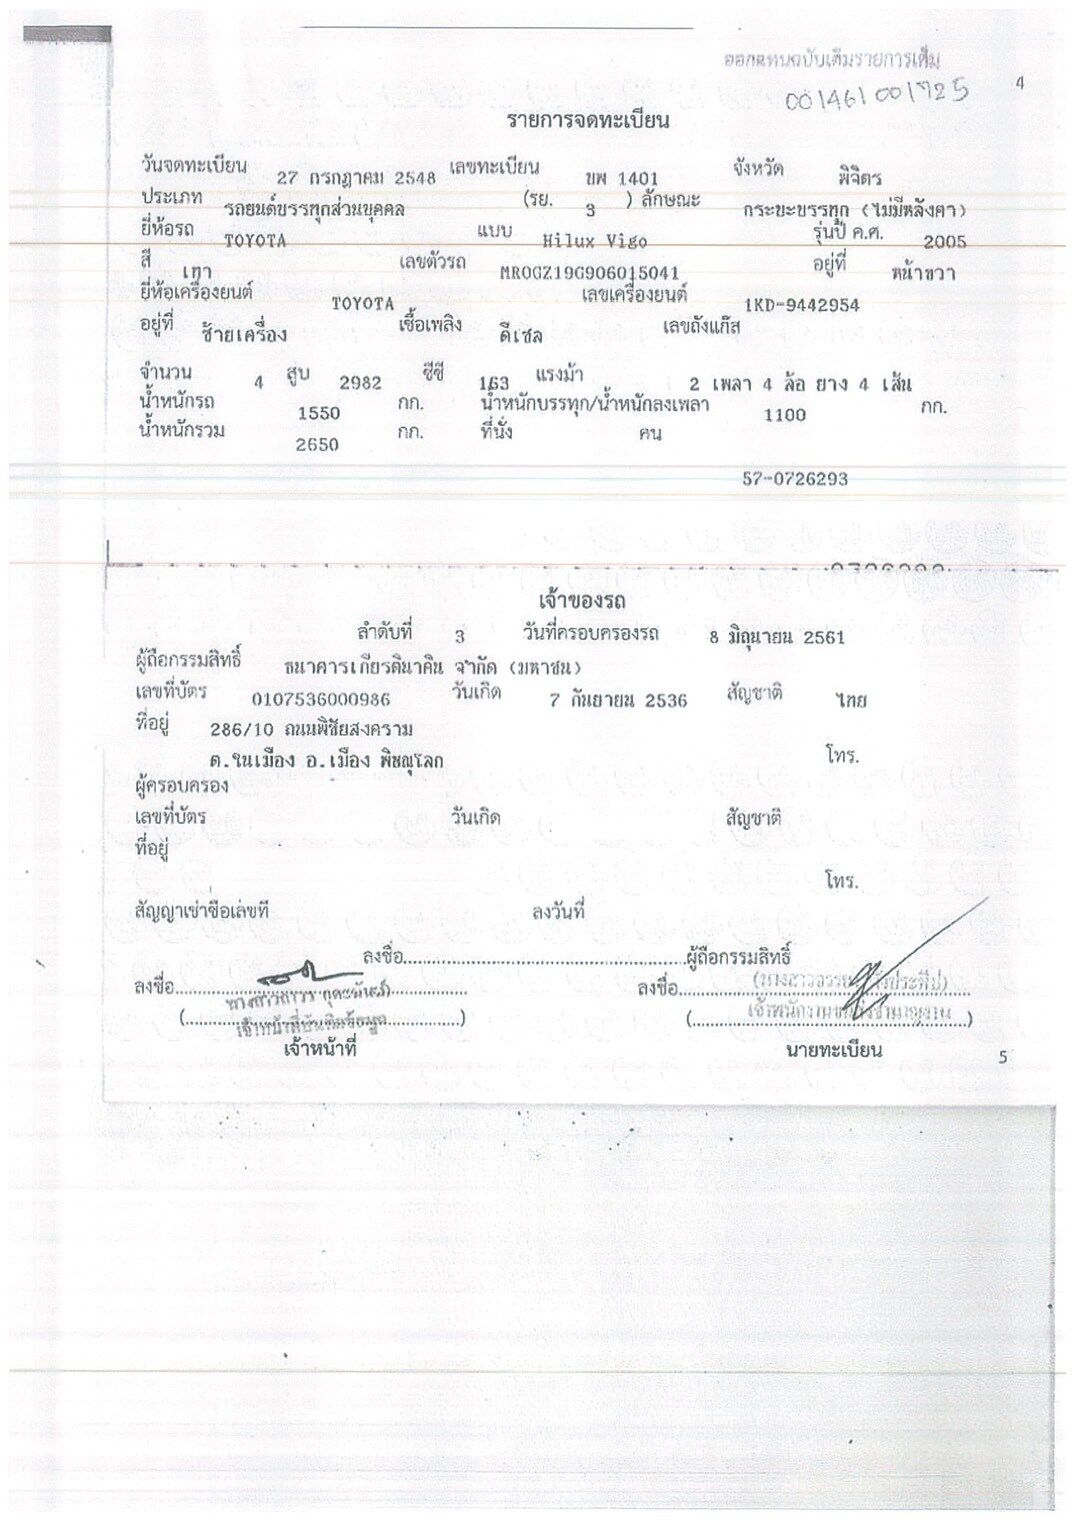 ออกแทนฉบับเดิมรายการเต็ม
4
001461001725
รายการจดทะเบียน
วันจดทะเบียน 27 กรกฎาคม 2548 เลขทะเบียน บพ 1401 จังหวัด พิจิตร
ประเภท รถยนต์บรรทุกส่วนบุคคล (รย. 3 ) ลักษณะ กระบะบรรทุก (ไม่มีหลังคา)
ยี่ห้อรถ TOYOTA แบบ Hilux Vigo รุ่นปี ค.ศ. 2005
สี เทา เลขตัวรถ MROGZ19G906015041 อยู่ที่ หน้าขวา
ยี่ห้อเครื่องยนต์ TOYOTA เลขเครื่องยนต์ 1KD-9442954
อยู่ที่ ซ้ายเครื่อง เชื้อเพลิง ดีเซล เลขถังแก๊ส
จำนวน 4 สูบ 2982 ซีซี 163 แรงม้า 2 เพลา 4 ล้อ ยาง 4 เส้น
น้ำหนักรถ 1550 กก. น้ำหนักบรรทุก/น้ำหนักลงเพลา 1100 กก.
น้ำหนักรวม 2650 กก. ที่นั่ง คน
57-0726293
เจ้าของรถ
ลำดับที่ 3 วันที่ครอบครองรถ 8 มิถุนายน 2561
ผู้ถือกรรมสิทธิ์ ธนาคารเกียรตินาคิน จำกัด (มหาชน)
เลขที่บัตร 0107536000986 วันเกิด 7 กันยายน 2536 สัญชาติ ไทย
ที่อยู่ 286/10 ถนนพิชัยสงคราม
ต.ในเมือง อ.เมือง พิษณุโลก โทร.
ผู้ครอบครอง
เลขที่บัตร วันเกิด สัญชาติ
ที่อยู่
โทร.
สัญญาเช่าซื้อเลขที่ ลงวันที่
ลงชื่อ ผู้ถือกรรมสิทธิ์
ลงชื่อ นางสาวถาวร ลงชื่อ
(เจ้าหน้าที่บันทึกข้อมูล) (เจ้าพนักงานขนส่งชำนาญงาน)
เจ้าหน้าที่ นายทะเบียน
5